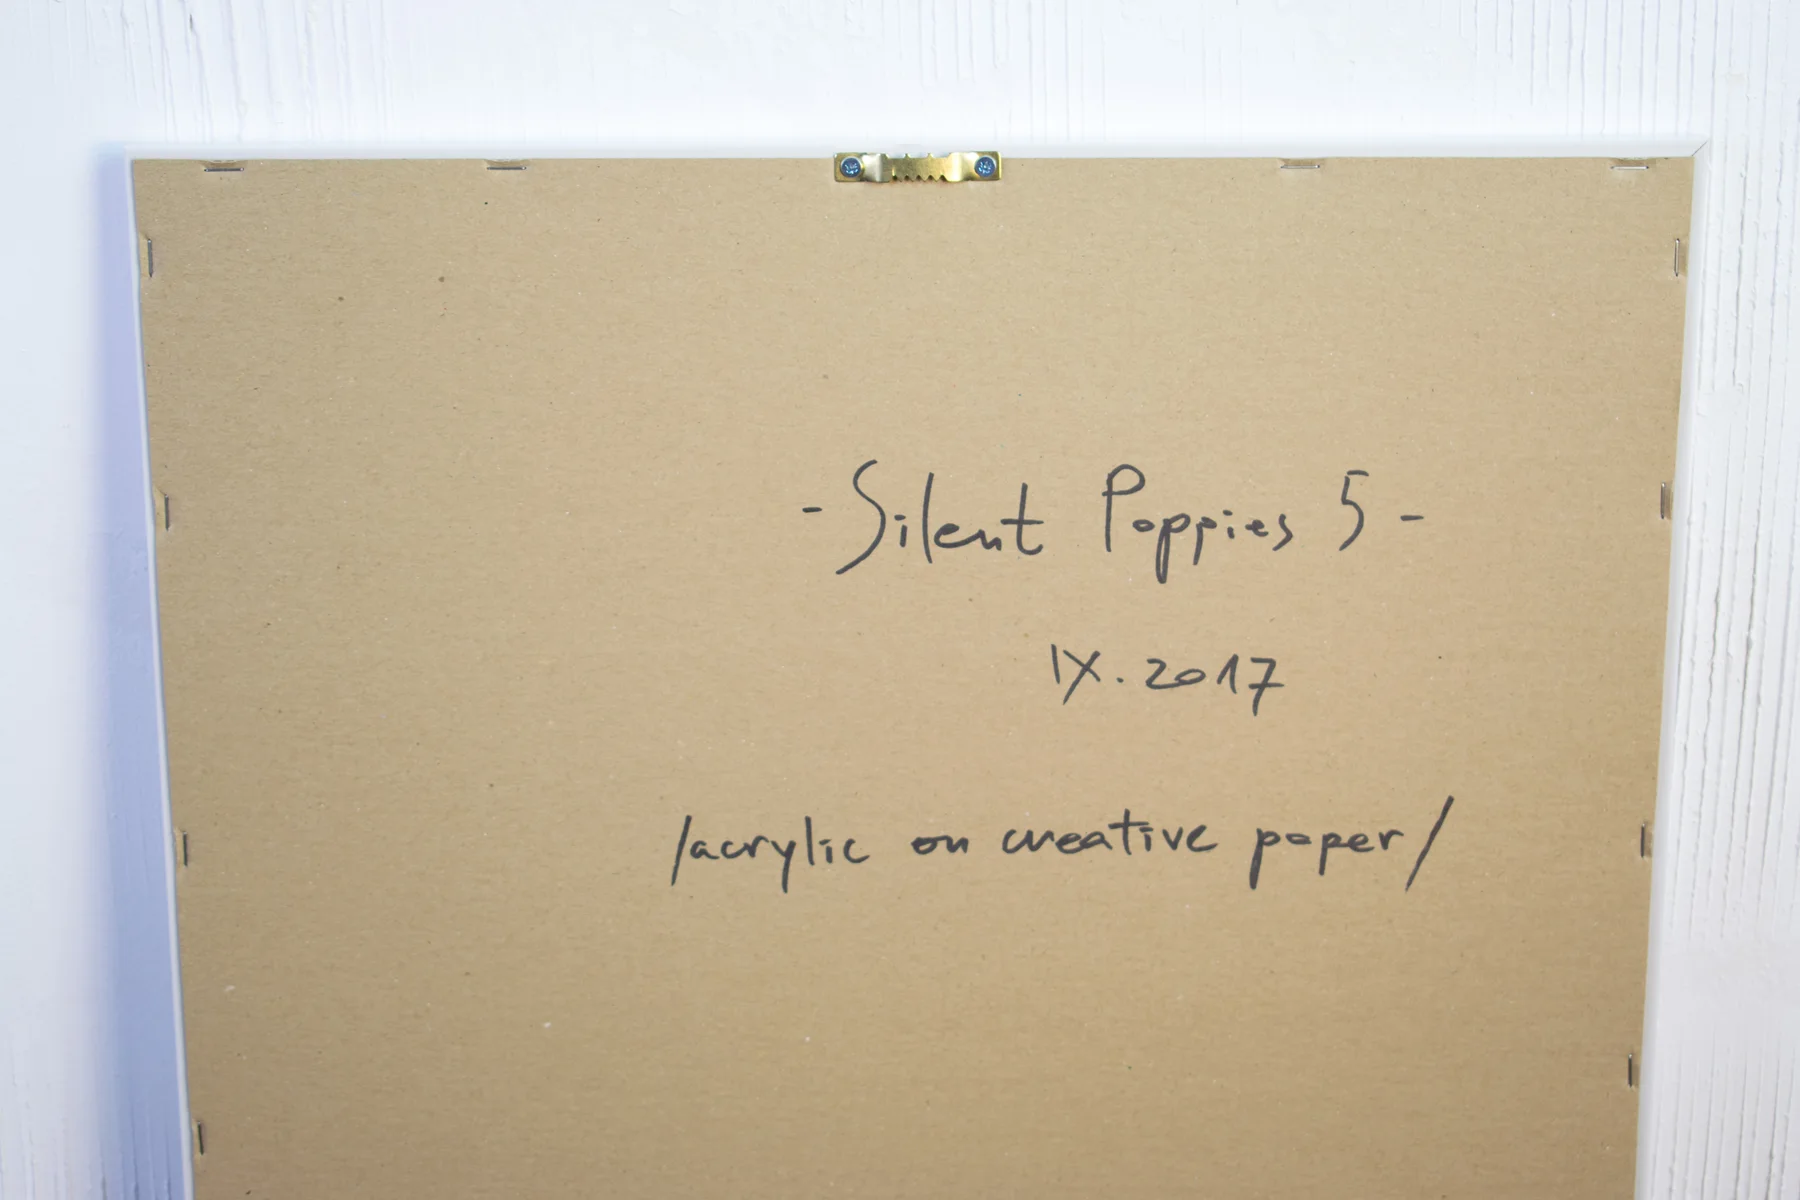 - Silent Poppies 5 -
IX. 2017
/acrylic on creative paper/